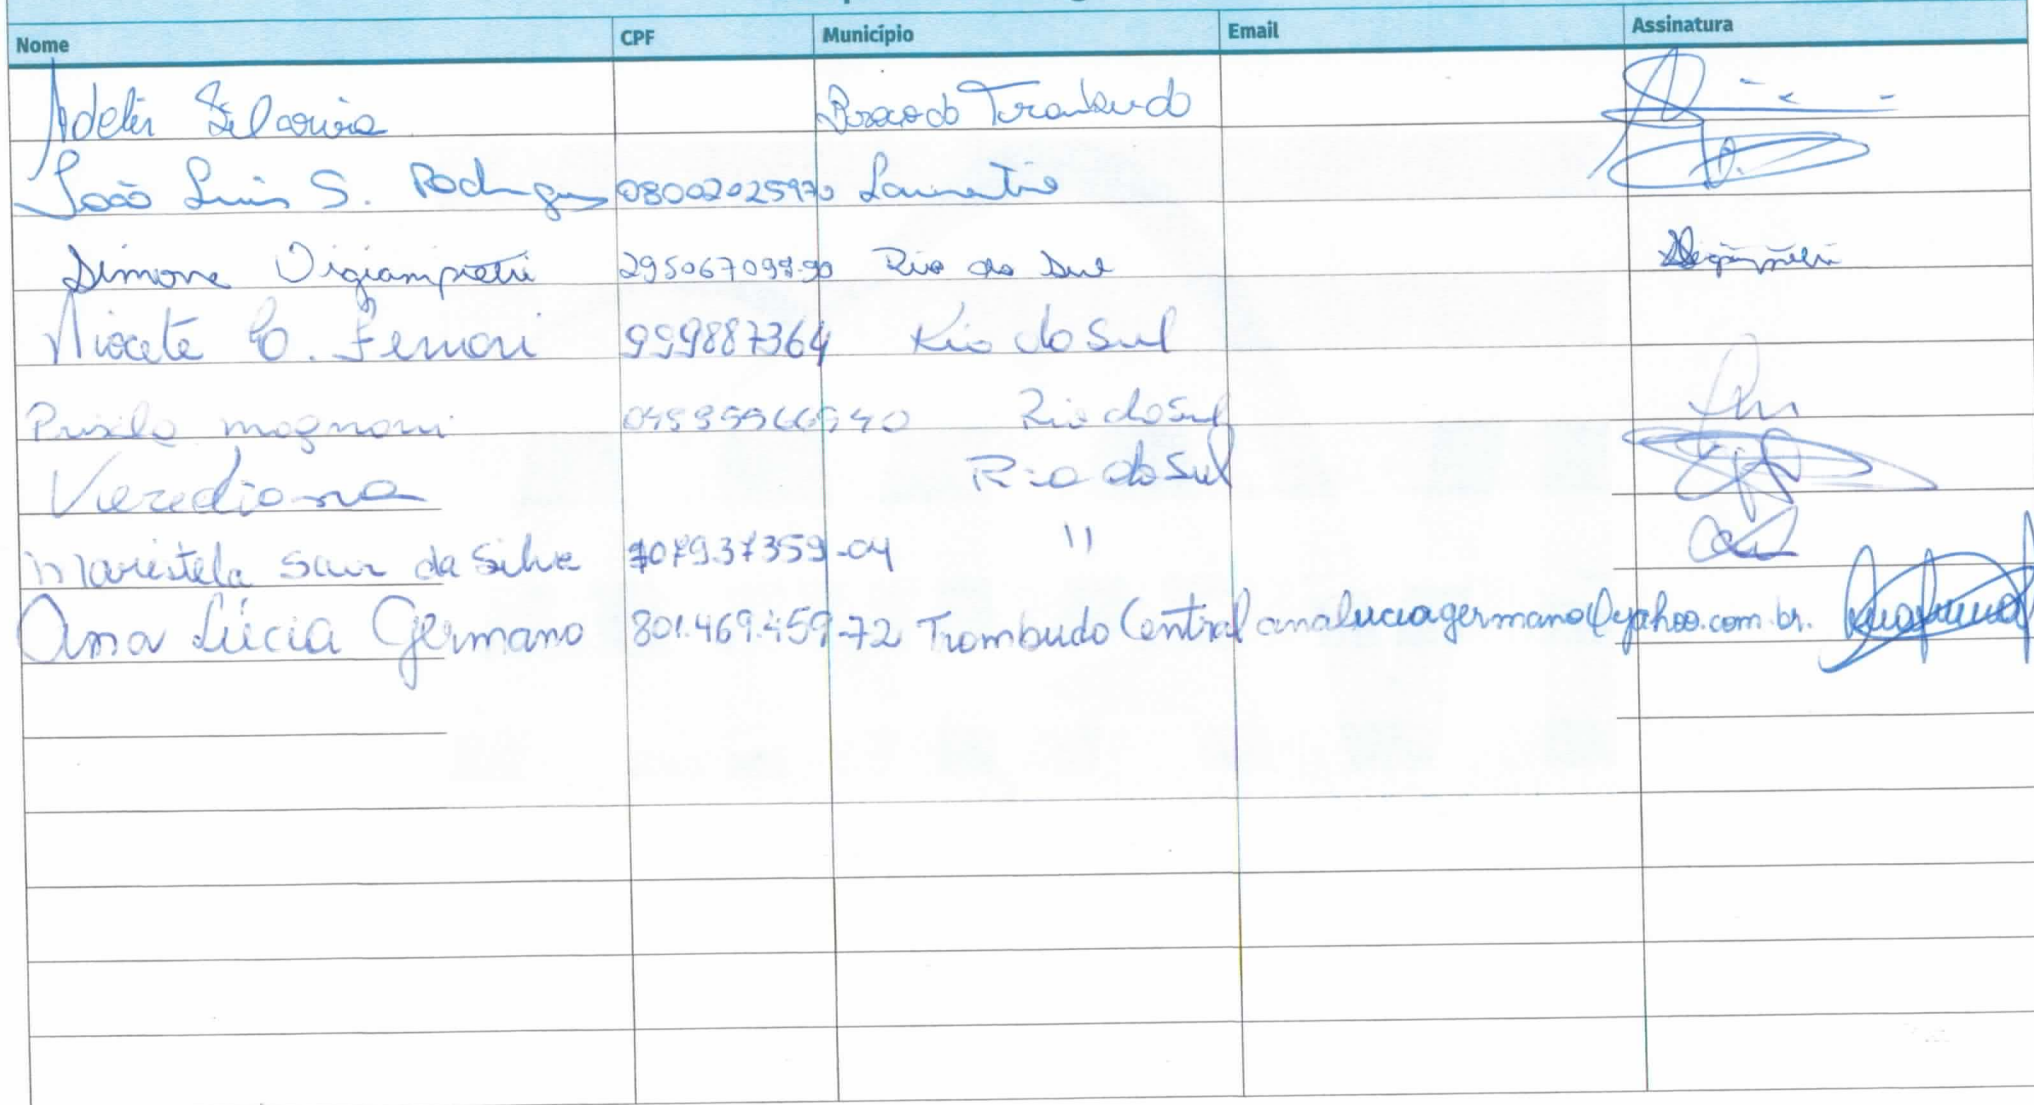 Nome CPF Município Email Assinatura
Adelir Braço do Trombudo
João Luis S. Rodrigues 08002025970 Laurentino
Simone Vigiampietri Rio do Sul
C. Ferrari 999887364 Rio do Sul
Prisila mognoni Rio do Sul
Verediana Rio do Sul
Maristela Saur da Silva 707937359-04 "
Ana Lúcia Germano 801.469.459-72 Trombudo Central analuciagermano@yahoo.com.br.